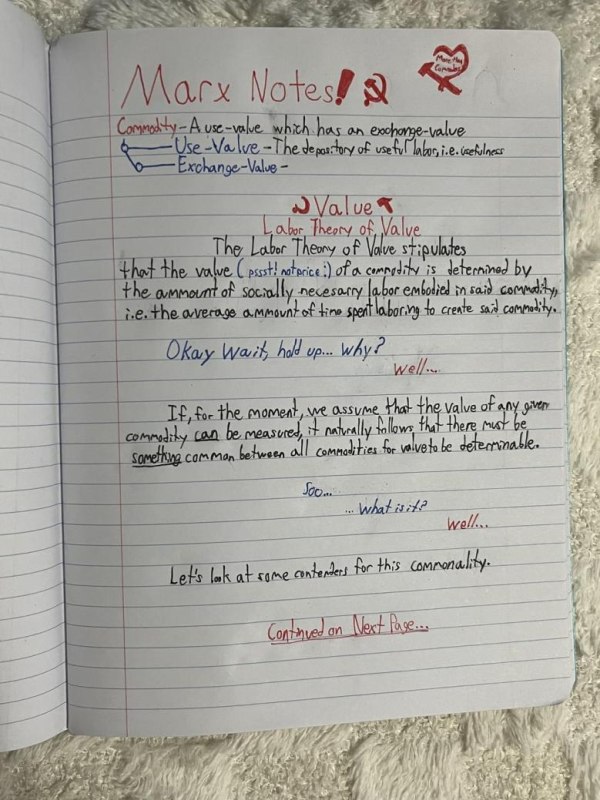 Marx Notes!
More Than
Comrades
Commodity - A use-value which has an exchange-value
Use-Value - The depository of useful labor, i.e. usefulness
Exchange-Value -
Value
Labor Theory of Value
The Labor Theory of Value stipulates
that the value (pssst! not price!) of a commodity is determined by
the ammount of socially necesarry labor embodied in said commodity,
i.e. the average ammount of time spent laboring to create said commodity.
Okay wait, hold up... why?
Well...
If, for the moment, we assume that the value of any given
commodity can be measured, it naturally follows that there must be
something common between all commodities for value to be determinable.
Soo...
... What is it?
Well...
Let's look at some contenders for this commonality.
Continued on Next Page...